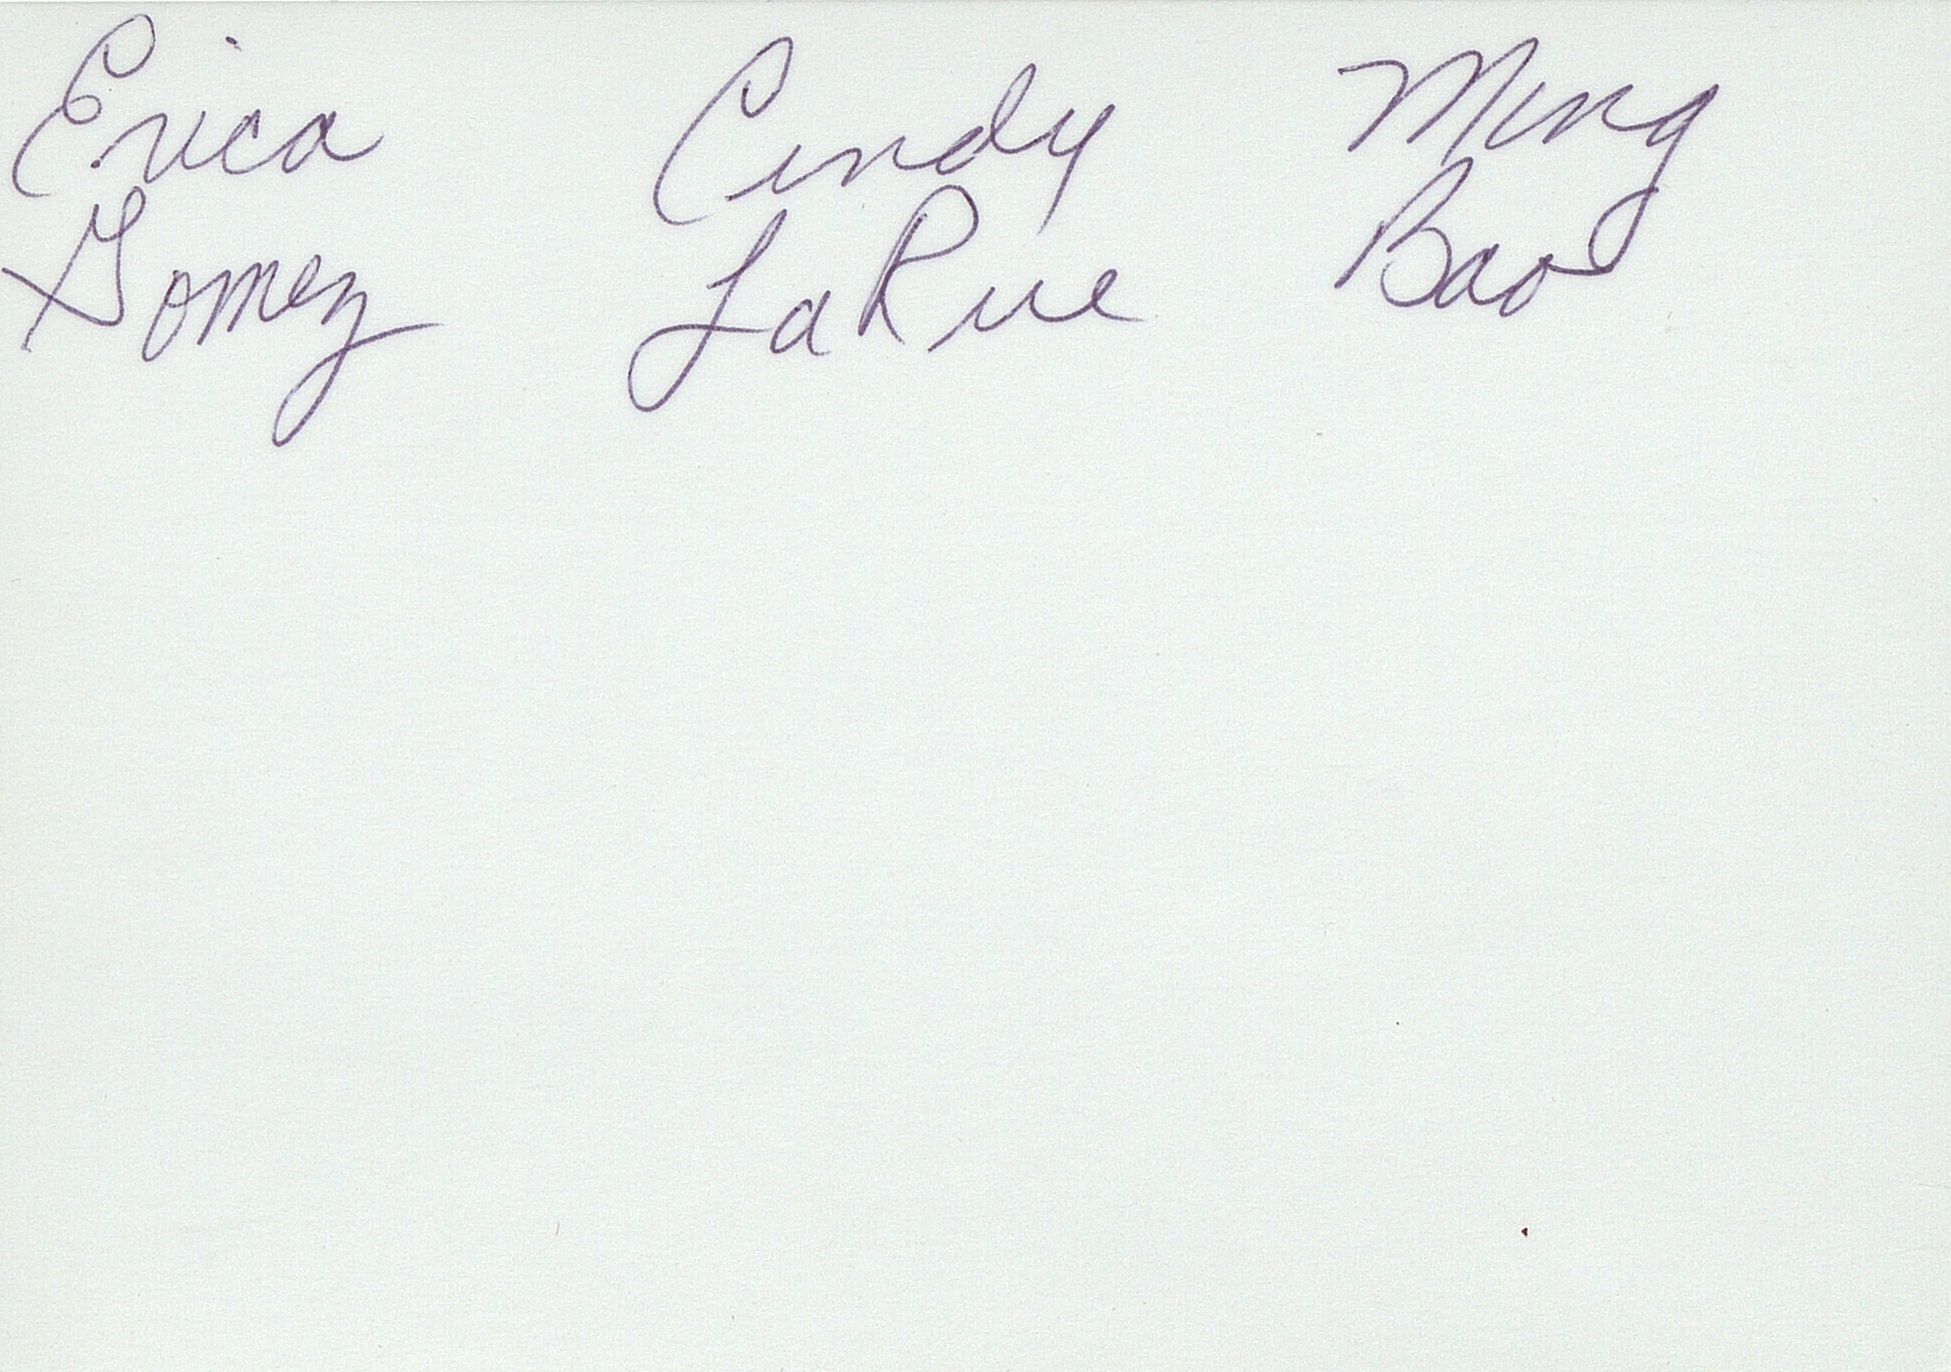 Erica Cindy Ming
Gomez LaRue Bao